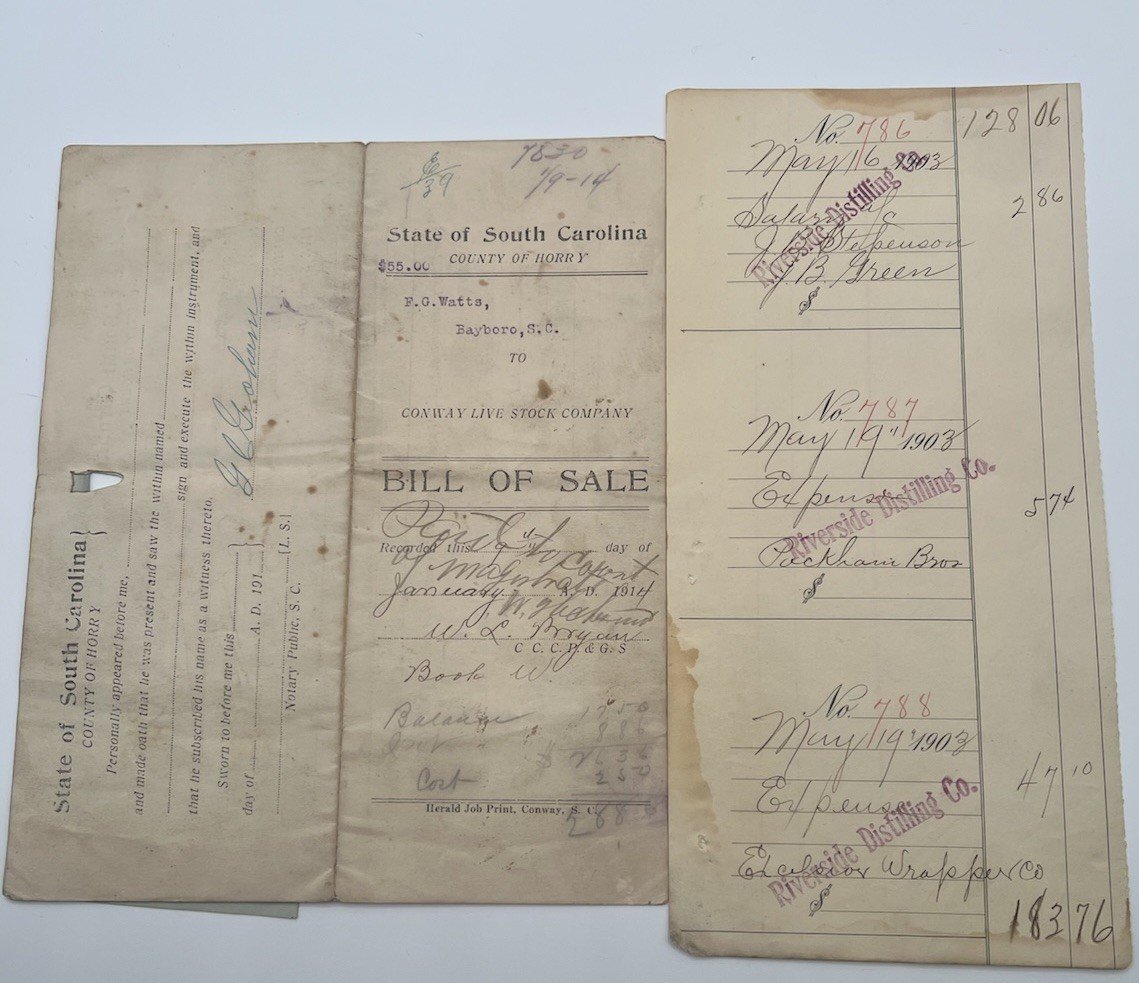 State of South Carolina
COUNTY OF HORRY
Personally appeared before me,
and made oath that he was present and saw the within named
sign and execute the within instrument, and
that he subscribed his name as a witness thereto.
Sworn to before me this
day of A. D. 191
Notary Public, S. C. [L. S.]
7830
1/9-14
State of South Carolina
$55.00 COUNTY OF HORRY
F.G.Watts,
Bayboro,S.C.
TO
CONWAY LIVE STOCK COMPANY
BILL OF SALE
Recorded this 9th day of
January A. D. 1914
W. L. Bryan
C. C. C. P. & G. S
Book W.
Balance 1750
Cost
Herald Job Print, Conway, S. C.
128 06
No. 786
May 16 1903
2 86
J. Stepenson
J B. Green
$
Riverside Distilling Co.
No. 787
May 19" 1903
Expense 5 74
Packham Bros
$
Riverside Distilling Co.
No. 788
May 19" 1903
47 10
Expense
Excelsior Wrapper Co
$
Riverside Distilling Co.
183 76